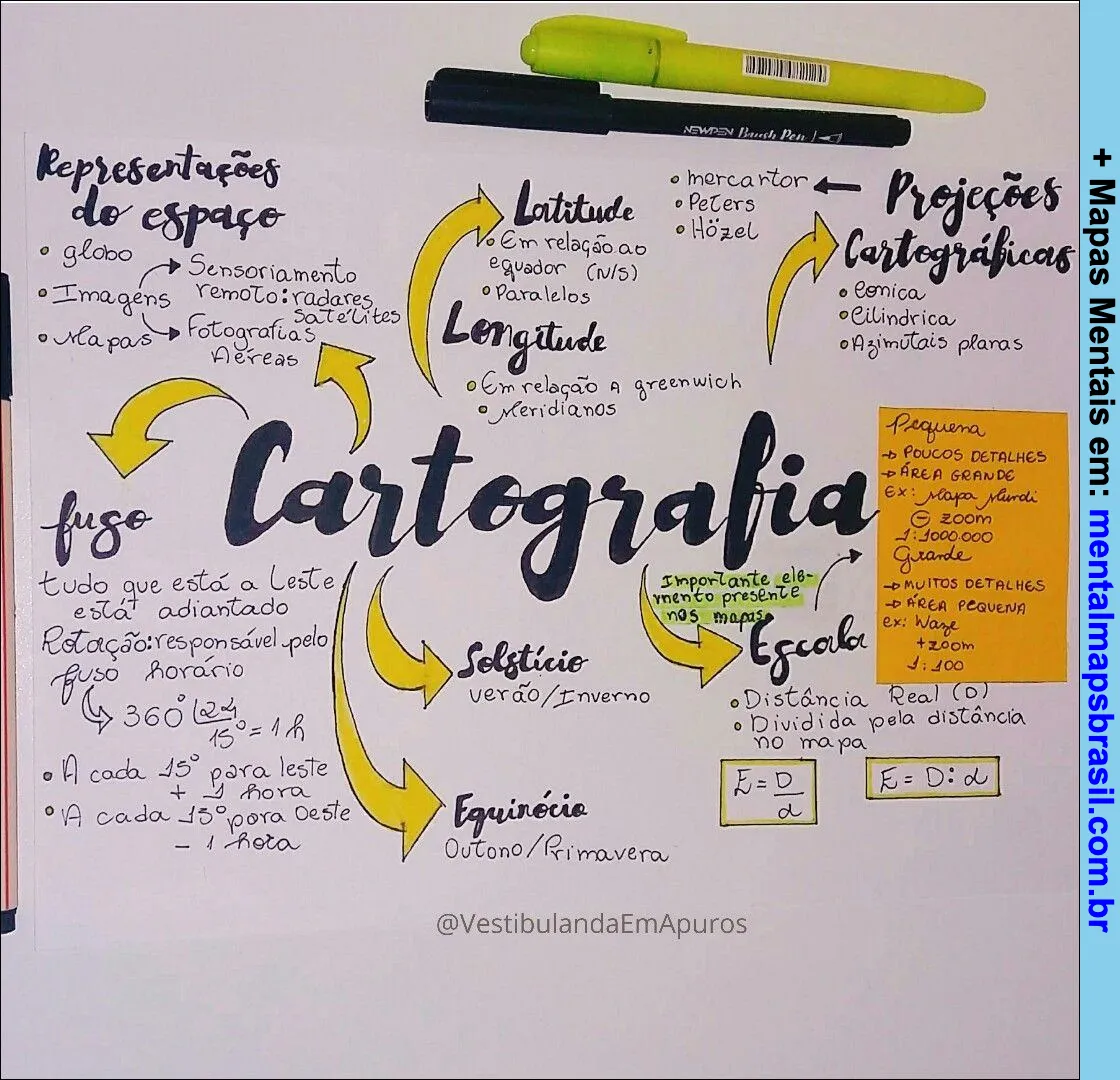 NEWPEN Brush Pen
Representações
do espaço
globo
Imagens
Mapas
Sensoriamento
remoto: radares
satélites
Fotografias
Aéreas
Latitude
Em relação ao
equador (N/S)
Paralelos
Longitude
Em relação A greenwich
Meridianos
mercantor
Peters
Hözel
Projeções
Cartográficas
Conica
Cilindrica
Azimutais planas
Cartografia
fuso
tudo que está a Leste
está adiantado
Rotação: responsável pelo
fuso horário
360° 24
15° = 1 h
A cada 15° para leste
+ 1 hora
A cada 15° para Oeste
- 1 hora
Solstício
verão/Inverno
Equinócio
Outono/Primavera
Importante ele-
mento presente
nos mapas
Escala
Distância Real (D)
Dividida pela distância
no mapa
E = D
d
E = D : d
Pequena
→ POUCOS DETALHES
→ ÁREA GRANDE
Ex: Mapa Mundi
⊖ zoom
1:1000.000
Grande
→ MUITOS DETALHES
→ ÁREA PEQUENA
ex: Waze
+zoom
1:100
@VestibulandaEmApuros
+ Mapas Mentais em: mentalmapsbrasil.com.br